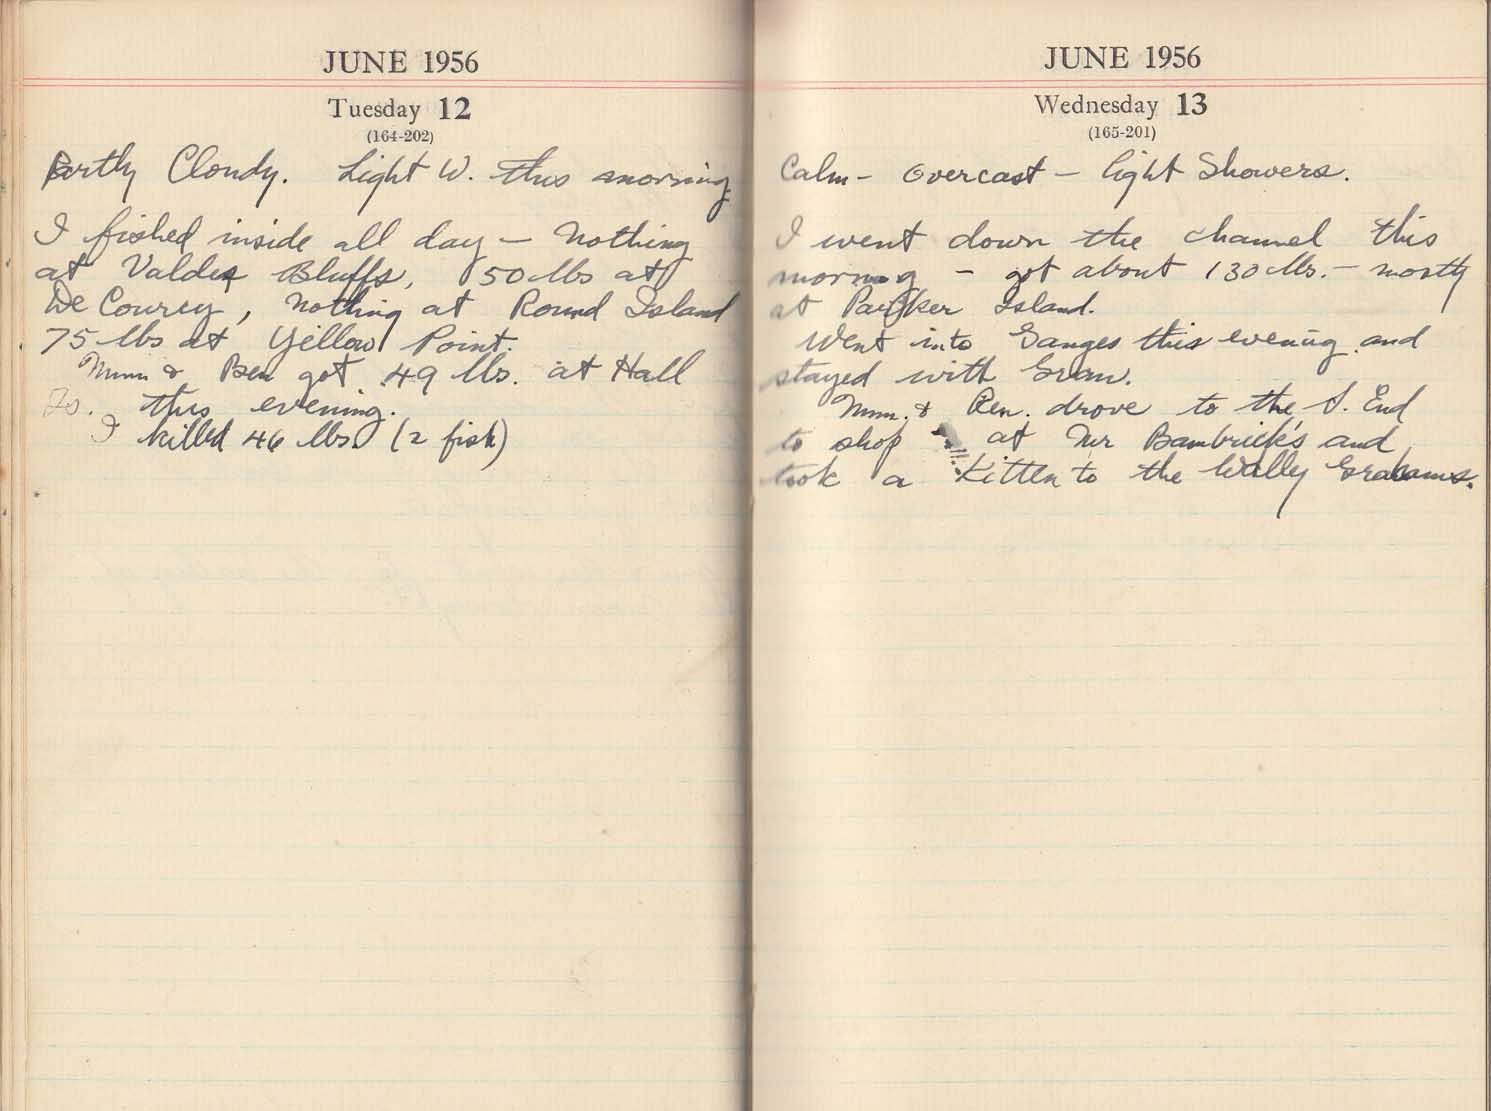 JUNE 1956
Tuesday 12
(164-202)
Partly Cloudy. Light W. this morning
I fished inside all day – Nothing
at Valdes Bluffs, 50 lbs at
De Courcy, nothing at Round Island
75 lbs at Yellow Point.
Mum & Ben got 49 lbs. at Hall
Is. this evening.
I killed 46 lbs. (2 fish)
JUNE 1956
Wednesday 13
(165-201)
Calm – Overcast – light Showers.
I went down the channel this
morning – got about 130 lbs. – mostly
at Parker Island.
Went into Ganges this evening and
stayed with Gran.
Mum. & Ben. drove to the S. End
to shop at Mr Bambrick's and
took a Kitten to the Wally Grahams.